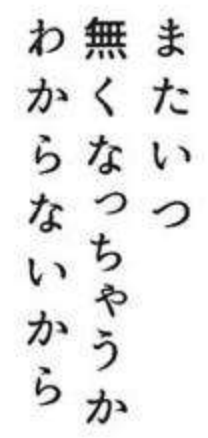 またいつ
無くなっちゃうか
わからないから